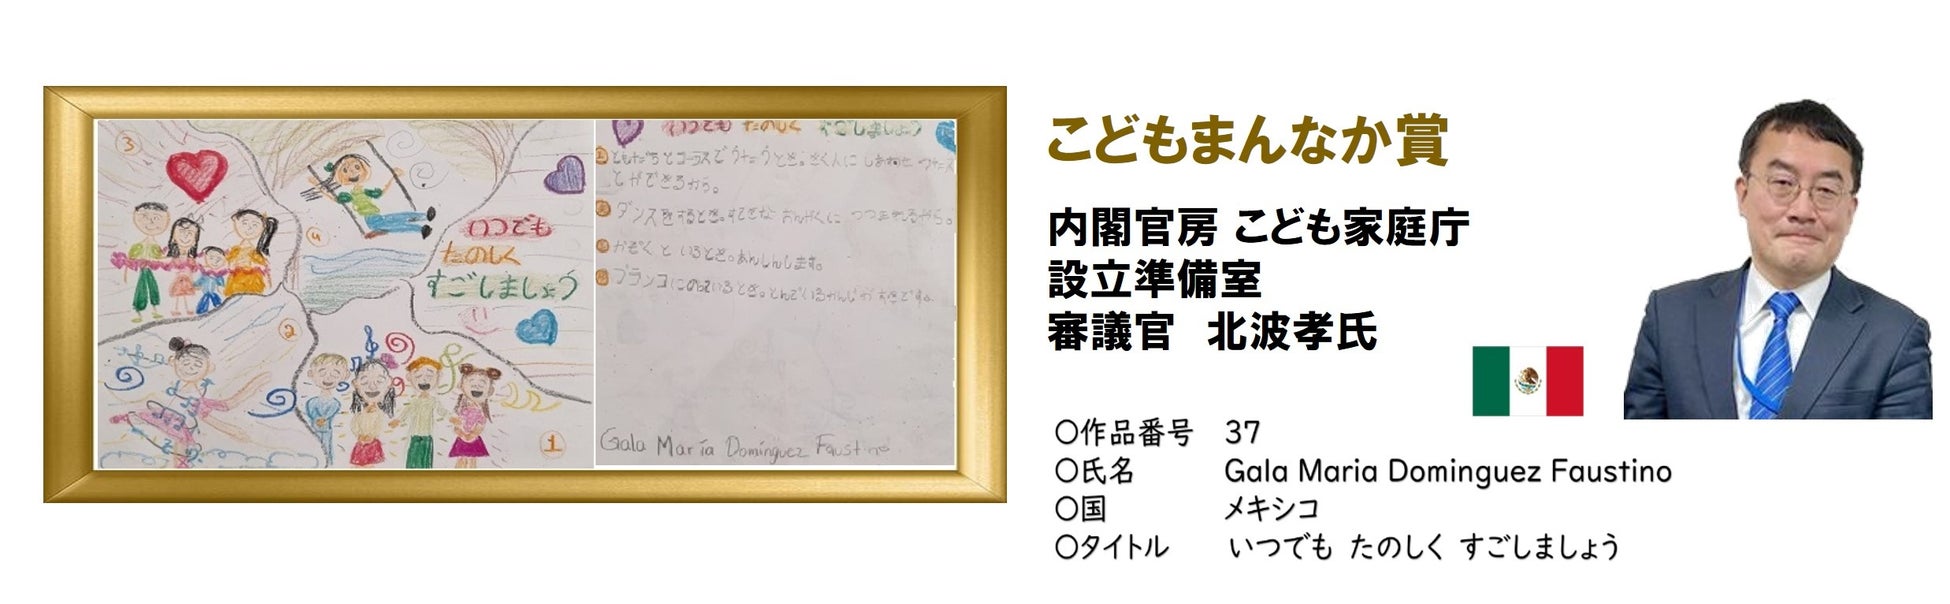 3
4
いつでも
たのしく
すごしましょう
2
1
いつでも たのしく すごしましょう
1 ともだちとコーラスでうたうとき。きく人に しあわせ
とができるから。
2 ダンスをするとき。すてきな おんがくに つつまれるから。
3 かぞく と いるとき。あんしんします。
4 ブランコにのっているとき。とんでいるかんじが すきです。
Gala María Domínguez Faustino
こどもまんなか賞
内閣官房 こども家庭庁
設立準備室
審議官 北波孝氏
〇作品番号 37
〇氏名 Gala Maria Dominguez Faustino
〇国 メキシコ
〇タイトル いつでも たのしく すごしましょう